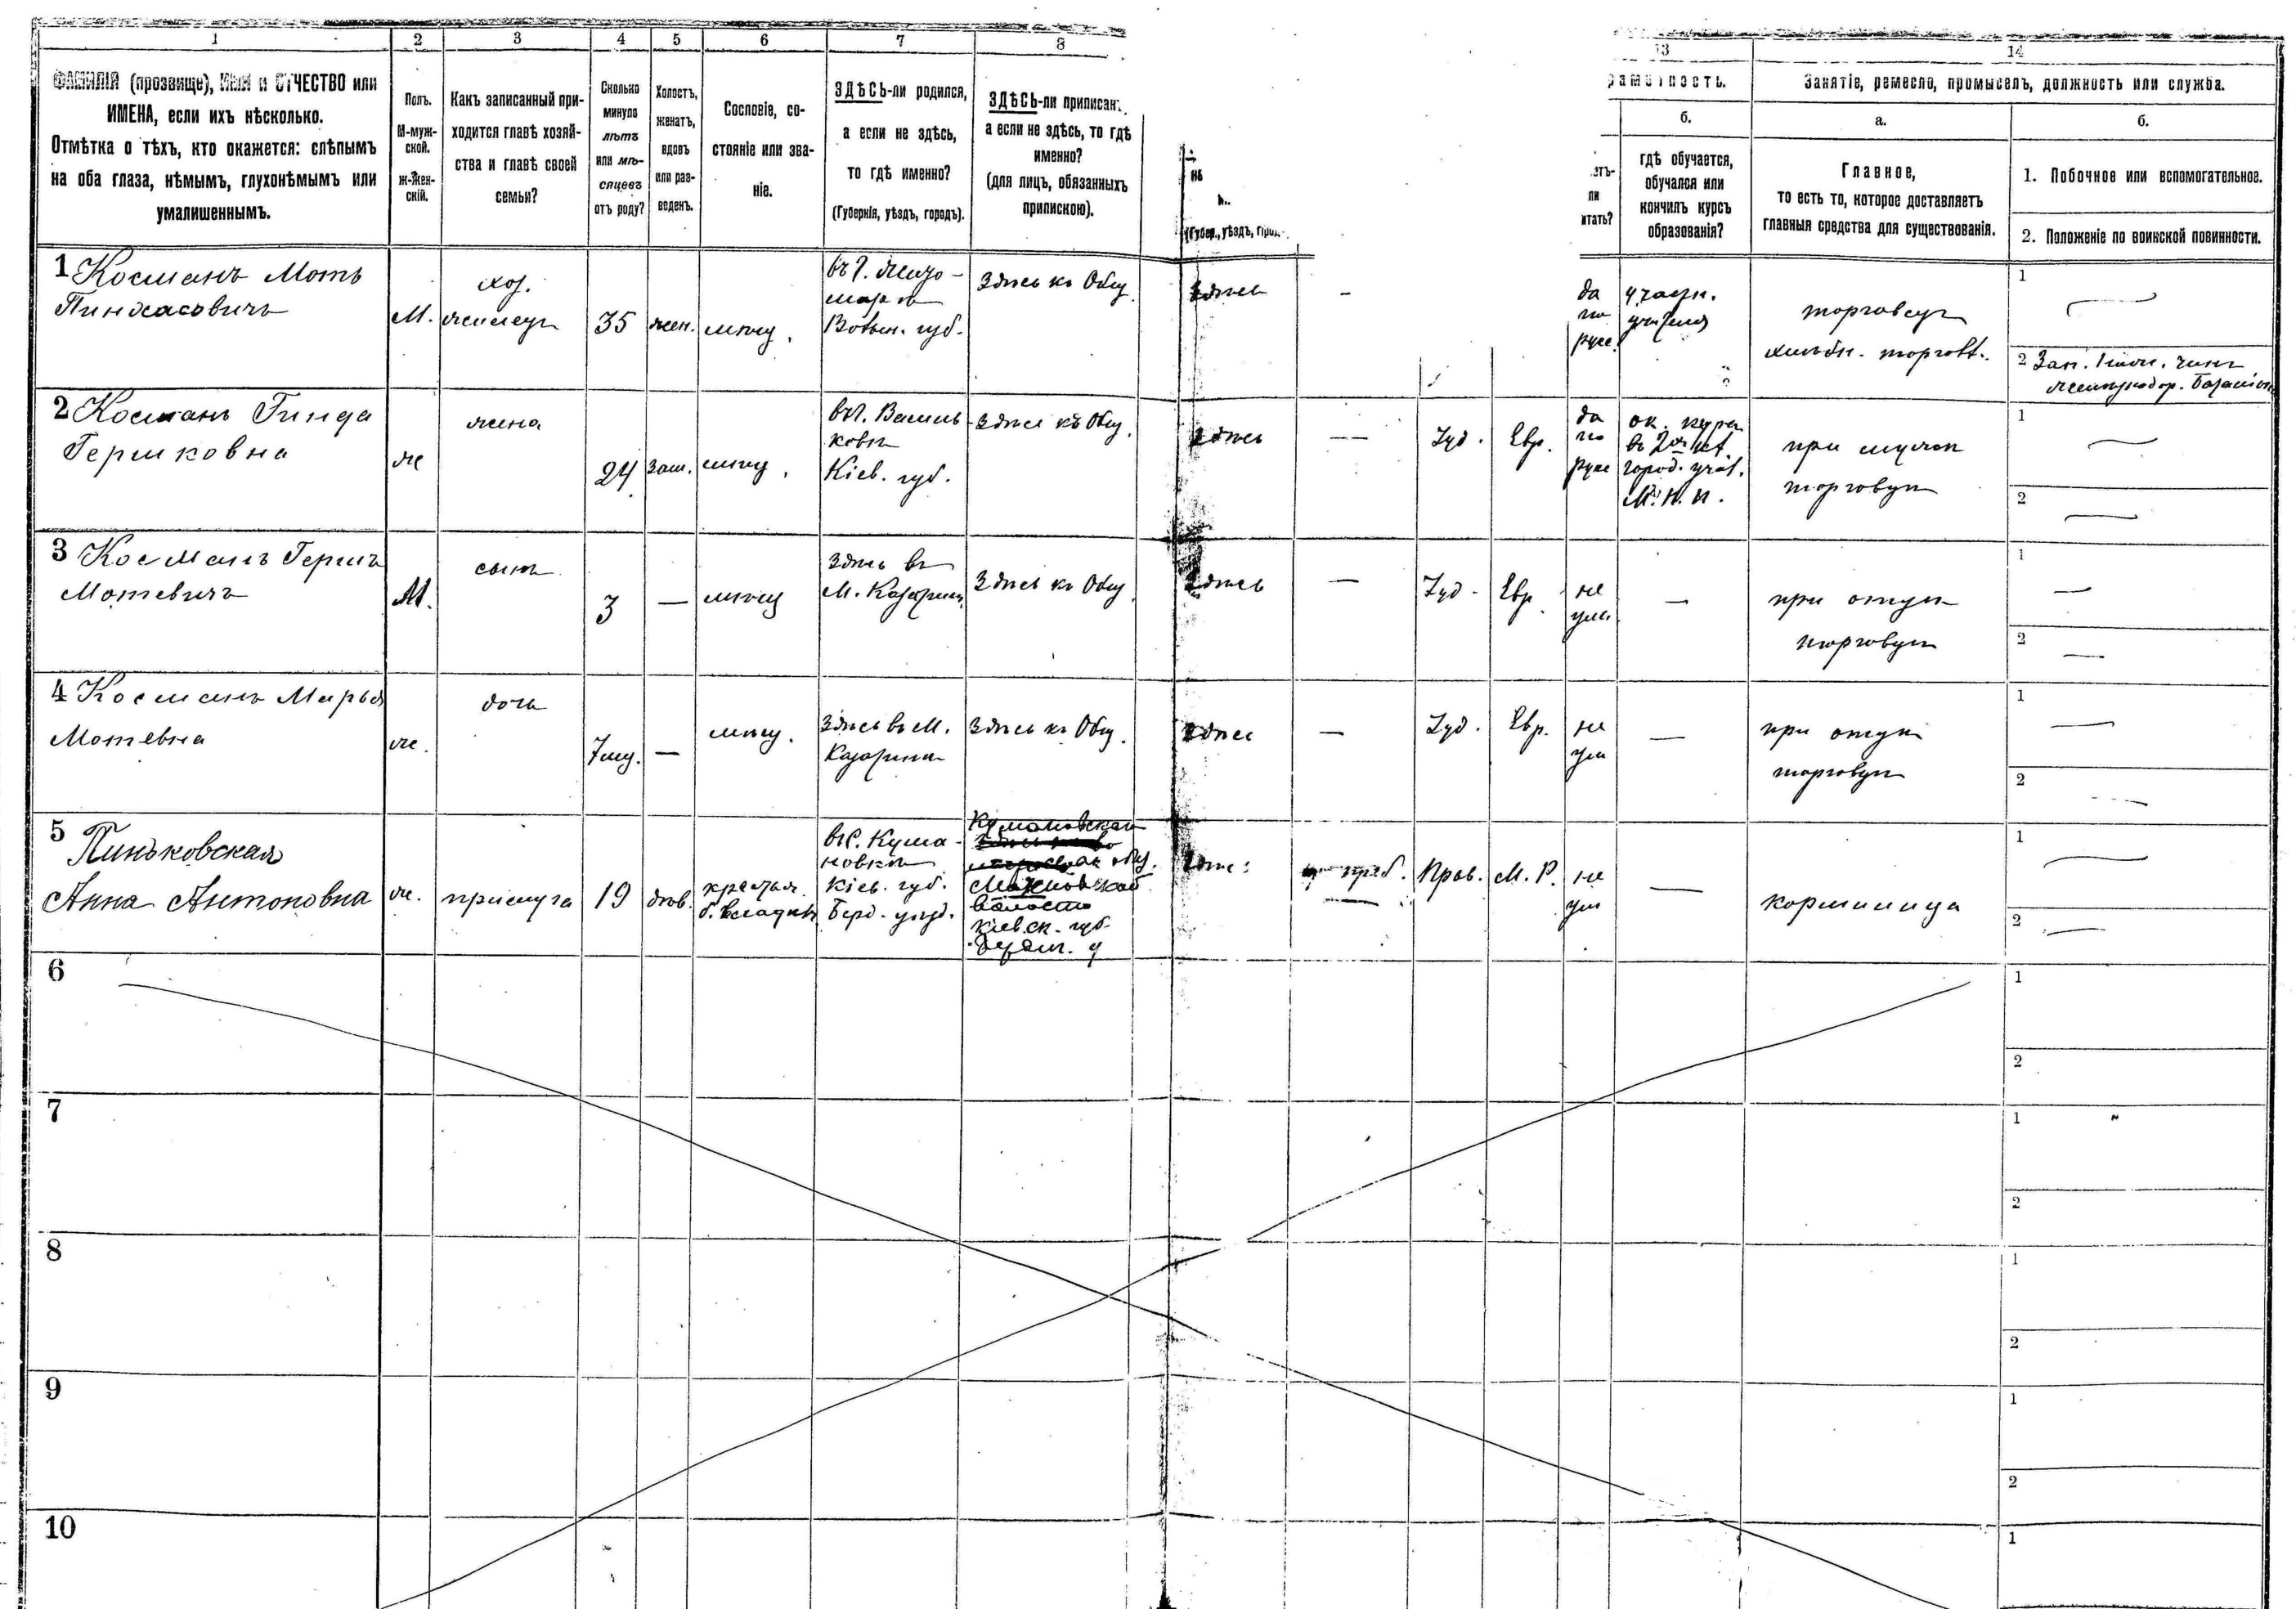 1 2 3 4 5 6 7 8 13 14
ФАМИЛІЯ (прозвище), ИМЯ и ОТЧЕСТВО или
ИМЕНА, если ихъ нѣсколько.
Отмѣтка о тѣхъ, кто окажется: слѣпымъ
на оба глаза, нѣмымъ, глухонѣмымъ или
умалишеннымъ.
Полъ.
М-муж-
ской.
Ж-Жен-
скій.
Какъ записанный при-
ходится главѣ хозяй-
ства и главѣ своей
семьи?
Сколько
минуло
лѣтъ
или мѣ-
сяцевъ
отъ роду?
Холостъ,
женатъ,
вдовъ
или раз-
веденъ.
Сословіе, со-
стояніе или зва-
ніе.
ЗДѢСЬ-ли родился,
а если не здѣсь,
то гдѣ именно?
(Губернія, уѣздъ, городъ).
ЗДѢСЬ-ли приписанъ.
а если не здѣсь, то гдѣ
именно?
(для лицъ, обязанныхъ
припискою).
(Губер., уѣздъ, город.
рамотность.
б.
гдѣ обучается,
обучался или
кончилъ курсъ
образованія?
Занятіе, ремесло, промыселъ, должность или служба.
а.
Главное,
то есть то, которое доставляетъ
главныя средства для существованія.
б.
1. Побочное или вспомогательное.
2. Положеніе по воинской повинности.
1 Косманъ Моть
Пинхасовичъ
М.
хоз.
35
жен.
мѣщ.
Волын. губ.
здѣсь къ Общ.
здѣсь
–
да
по
русс.
торговецъ
хлѣбн. торговл.
1
2
2 Косманъ Гинда
Гершковна
ж
жена
24
зам.
мѣщ.
въ г. Василь-
ковѣ
Кіев. губ.
здѣсь къ Общ.
здѣсь
—
Іуд.
Евр.
да
по
русс
ок. курсъ
город. учил.
М. Н. П.
при мужѣ
торговцѣ
1
2
3 Косманъ Гершъ
Мотевичъ
М.
сынъ
3
—
мѣщ
здѣсь въ
здѣсь къ Общ.
здѣсь
—
Іуд.
Евр.
не
ум.
—
при отцѣ
торговцѣ
1
2
4 Косманъ Марья
Мотевна
ж.
дочь
7 мѣ.
—
мѣщ.
здѣсь въ М.
здѣсь къ Общ.
здѣсь
—
Іуд.
Евр.
не
ум
—
при отцѣ
торговцѣ
1
2
5 Пиньковская
Анна Антоновна
ж.
прислуга
19
дѣв.
въ с. Кума-
новкѣ
Кіев. губ.
Берд. уѣзд.
Кумановскаго
волости
Кіевск. губ.
Прав.
М. Р.
не
ум
—
кормилица
1
2
6
1
2
7
1
2
8
1
2
9
1
2
10
1